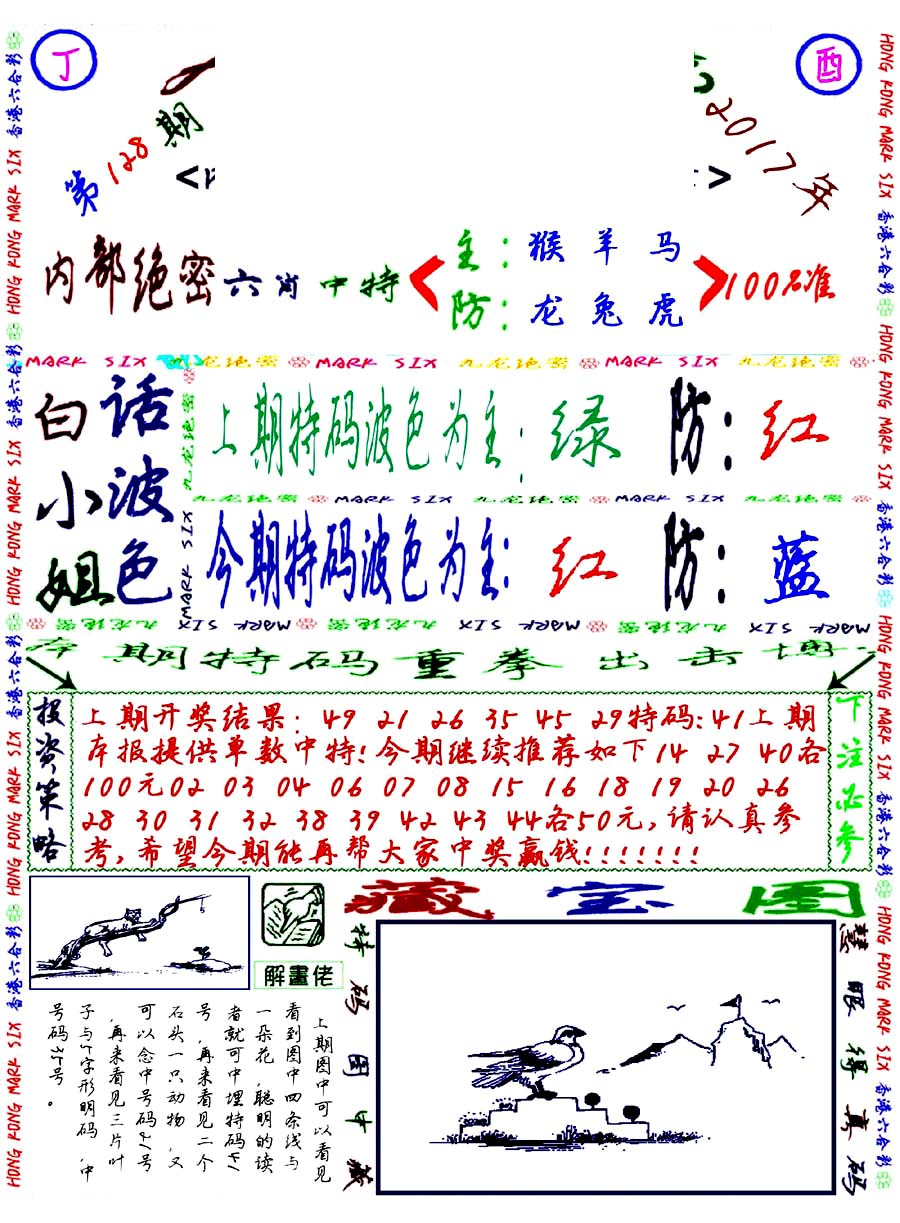 丁
酉
第128期
2017年
内部绝密六肖中特
主：猴羊马
防：龙兔虎
100%准
MARK SIX 九龙绝密 MARK SIX 九龙绝密 MARK SIX 九龙绝密
白小姐
话波色
上期特码波色为主：绿 防：红
九龙绝密 MARK SIX 九龙绝密 MARK SIX 九龙绝密
今期特码波色为主：红 防：蓝
九龙绝密 MARK SIX 九龙绝密 MARK SIX 九龙绝密 MARK SIX
本期特码重拳出击博
投资策略
上期开奖结果：49 21 26 35 45 29特码：41上期
本报提供单数中特！今期继续推荐如下14 27 40各
100元02 03 04 06 07 08 15 16 18 19 20 26
28 30 31 32 38 39 42 43 44各50元，请认真参
考，希望今期能再帮大家中奖赢钱！！！！！！！
下注必参
解畫佬
藏宝图
上期图中可以看见
看到图中四条线与
一朵花，聪明的读
者就可中埋特码41
号，再来看见二个
石头一只动物，又
可以念中号码21号
，再来看见三片叶
子与5字形明码，中
号码35号。
特码图中藏
慧眼得真码
HONG KONG MARK SIX 香港六合彩 HONG KONG MARK SIX 香港六合彩 HONG KONG MARK SIX 香港六合彩 HONG KONG MARK SIX 香港六合彩
HONG KONG MARK SIX 香港六合彩 HONG KONG MARK SIX 香港六合彩 HONG KONG MARK SIX 香港六合彩 HONG KONG MARK SIX 香港六合彩